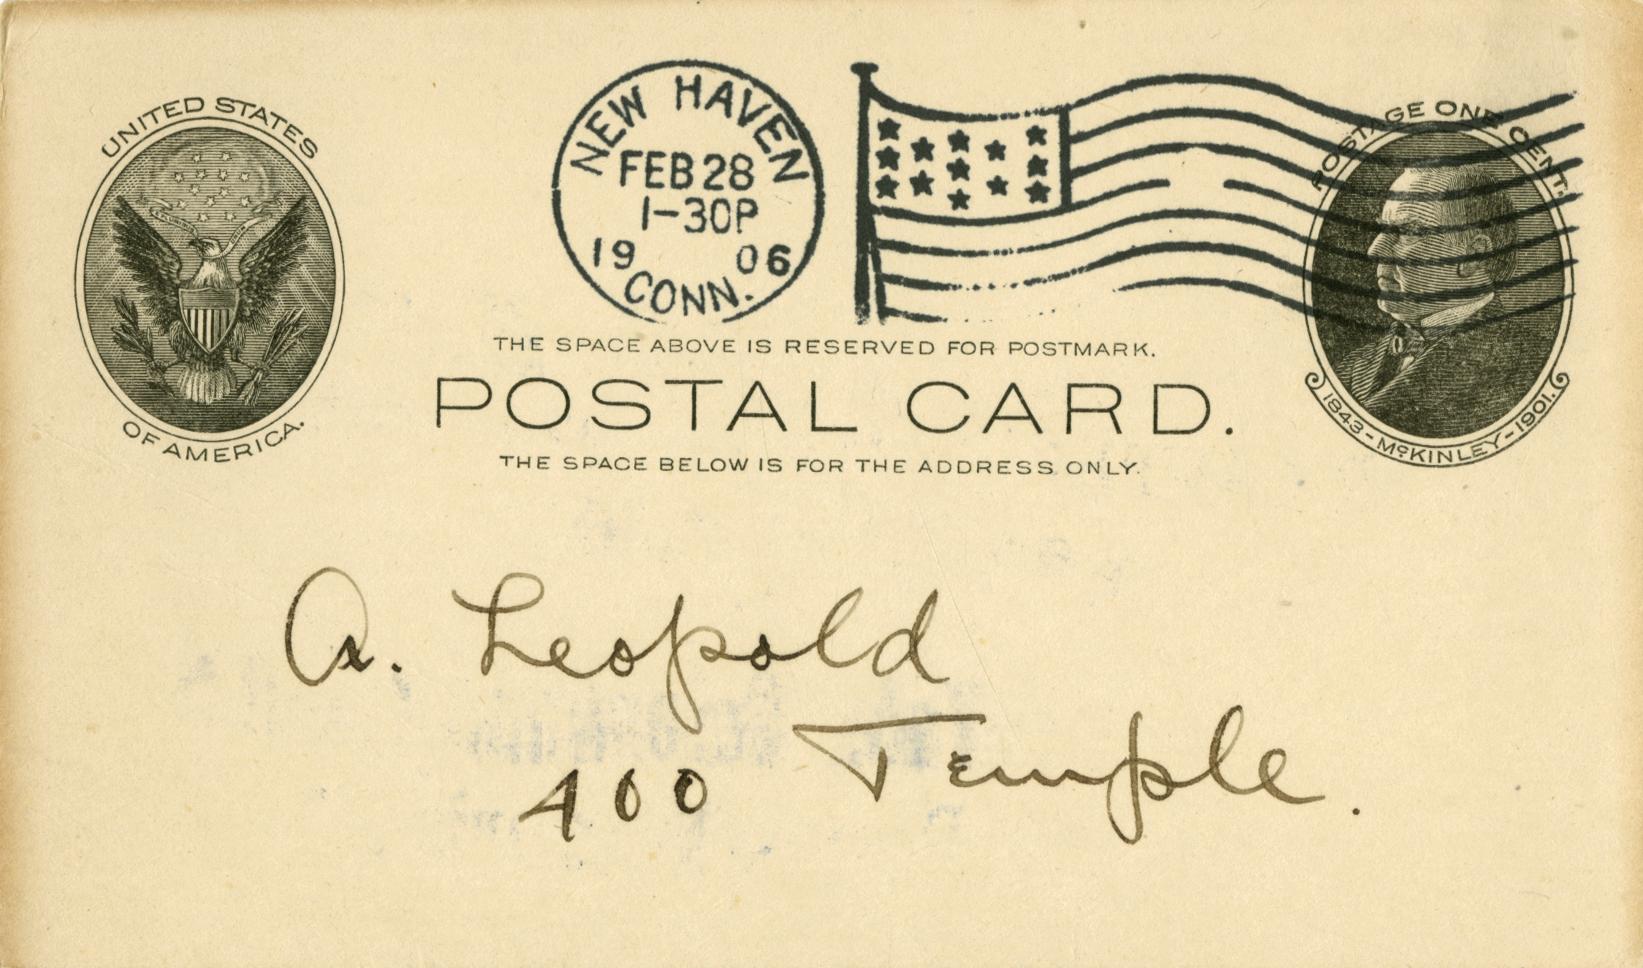 UNITED STATES
OF AMERICA.
NEW HAVEN
FEB 28
1-30P
19 06
CONN.
POSTAGE ONE CENT.
1843-McKINLEY-1901.
THE SPACE ABOVE IS RESERVED FOR POSTMARK.
POSTAL CARD.
THE SPACE BELOW IS FOR THE ADDRESS ONLY.
A. Leopold
400 Temple.